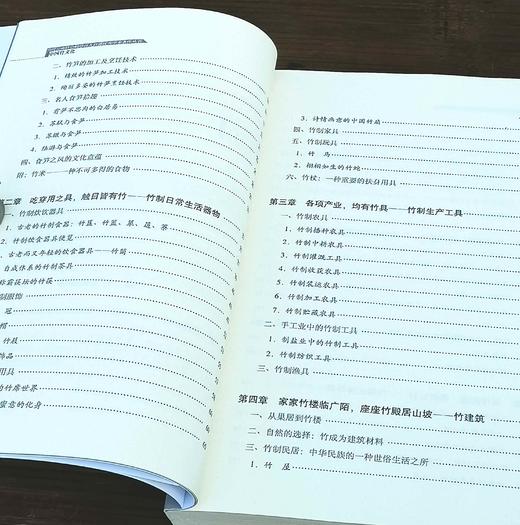 中国竹文化
二、竹笋的加工及烹饪技术
1. 精致的竹笋加工技术
2. 绚丽多姿的竹笋烹饪技术
三、名人食笋拾趣
1. 有笋不思肉的白居易
2. 苏轼与食笋
3. 苏轼与食笋
4. 陆游与食笋
四、食笋之风的文化意蕴
附：竹米——一种不可多得的食物
第二章 吃穿用之具，触目皆有竹——竹制日常生活器物
一、竹制炊饮器具
1. 古老的竹制食器：竹
2. 竹制饮食器具便览
古老而又年轻的饮食器具——竹筒
自成体系的竹制茶具
称霸茶坛的竹筷
制服饰
冠
帽
竹鞋
饰品
用具
的竹席世界
蜜意的化身
3. 诗情画意的中国竹扇
四、竹制家具
五、竹制玩具
1. 竹 马
2. 栩栩如生的竹蛇
六、竹杖：一种重要的扶身用具
第三章 各项产业，均有竹具——竹制生产工具
一、竹制农具
1. 竹制播种农具
2. 竹制中耕农具
3. 竹制灌溉工具
4. 竹制收获农具
5. 竹制装运农具
6. 竹制加工农具
7. 竹制贮藏农具
二、手工业中的竹制工具
1. 制盐业中的竹制工具
2. 竹制纺织工具
三、竹制渔具
第四章 家家竹楼临广陌，座座竹殿居山坡——竹建筑
一、从巢居到竹楼
二、自然的选择：竹成为建筑材料
三、竹制民居：中华民族的一种世俗生活之所
1. 竹 屋